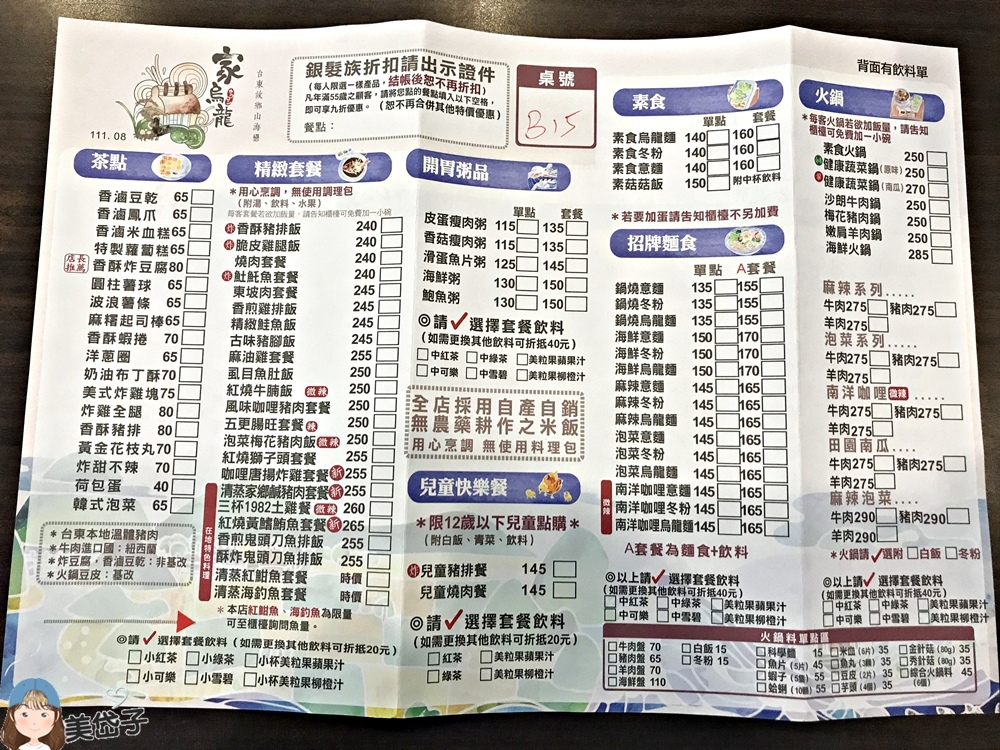 家烏龍
台東故鄉山海戀
111. 08
銀髮族折扣請出示證件
(每人限選一樣產品,結帳後恕不再折扣)
凡年滿55歲之顧客,請將您點的餐點填入以下空格,
即可享九折優惠。(恕不再合併其他特價優惠)
餐點:
桌號
B15
背面有飲料單
茶點
香滷豆乾 65
香滷鳳爪 65
香滷米血糕65
特製蘿蔔糕65
店長推薦 香酥炸豆腐80
圓柱薯球 65
波浪薯條 65
麻糬起司棒65
香酥蝦捲 70
洋蔥圈 65
奶油布丁酥70
美式炸雞塊75
炸雞全腿 80
香酥豬排 80
黃金花枝丸70
炸甜不辣 70
荷包蛋 40
韓式泡菜 65
*台東本地溫體豬肉
*牛肉進口國:紐西蘭
*炸豆腐,香滷豆乾:非基改
*火鍋豆皮:基改
精緻套餐
*用心烹調,無使用調理包
(附湯、飲料、水果)
每客套餐若欲加飯量,請告知櫃檯可免費加一小碗
炸 香酥豬排飯 240
炸 脆皮雞腿飯 240
燒肉套餐 240
炸 魠魠魚套餐 240
東坡肉套餐 245
香煎雞排飯 245
精緻鮭魚飯 245
古味豬腳飯 245
麻油雞套餐 255
虱目魚肚飯 250
紅燒牛腩飯 微辣 250
風味咖哩豬肉套餐 250
五更腸旺套餐 辣 250
泡菜梅花豬肉飯 微辣 250
紅燒獅子頭套餐 255
咖哩唐揚炸雞套餐 新 255
在地特色料理
清蒸家鄉鹹豬肉套餐 新 255
三杯1982土雞餐 微辣 260
紅燒黃鰭鮪魚套餐 新 265
香煎鬼頭刀魚排飯 255
酥炸鬼頭刀魚排飯 255
清蒸紅魽魚套餐 時價
清蒸海釣魚套餐 時價
*本店紅魽魚、海釣魚為限量
可至櫃檯詢問魚量。
◎請✓選擇套餐飲料 (如需更換其他飲料可折抵20元)
小紅茶 小綠茶 小杯美粒果蘋果汁
小可樂 小雪碧 小杯美粒果柳橙汁
開胃粥品
單點 套餐
皮蛋瘦肉粥 115 135
香菇瘦肉粥 115 135
滑蛋魚片粥 125 145
海鮮粥 130 150
鮑魚粥 130 150
◎請✓選擇套餐飲料
(如需更換其他飲料可折抵40元)
中紅茶 中綠茶 美粒果蘋果汁
中可樂 中雪碧 美粒果柳橙汁
全店採用自產自銷
無農藥耕作之米飯
用心烹調 無使用料理包
兒童快樂餐
*限12歲以下兒童點購*
(附白飯、青菜、飲料)
炸 兒童豬排餐 145
兒童燒肉餐 145
◎請✓選擇套餐飲料
(如需更換其他飲料可折抵20元)
紅茶 美粒果蘋果汁
綠茶 美粒果柳橙汁
素食
單點 套餐
素食烏龍麵 140 160
素食冬粉 140 160
素食意麵 140 160
素菇菇飯 150 附中杯飲料
*若要加蛋請告知櫃檯不另加費
招牌麵食
單點 A套餐
鍋燒意麵 135 155
鍋燒冬粉 135 155
鍋燒烏龍麵 135 155
海鮮意麵 150 170
海鮮冬粉 150 170
海鮮烏龍麵 150 170
麻辣意麵 145 165
麻辣冬粉 145 165
麻辣烏龍麵 145 165
泡菜意麵 145 165
泡菜冬粉 145 165
泡菜烏龍麵 145 165
微辣
南洋咖哩意麵 145 165
南洋咖哩冬粉 145 165
南洋咖哩烏龍麵 145 165
A套餐為麵食+飲料
◎以上請✓選擇套餐飲料
(如需更換其他飲料可折抵40元)
中紅茶 中綠茶 美粒果蘋果汁
中可樂 中雪碧 美粒果柳橙汁
火鍋
*每客火鍋若欲加飯量,請告知
櫃檯可免費加一小碗
素食火鍋 250
健康蔬菜鍋(原味) 250
健康蔬菜鍋(南瓜) 270
沙朗牛肉鍋 250
梅花豬肉鍋 250
嫩肩羊肉鍋 250
海鮮火鍋 285
麻辣系列.....
牛肉275 豬肉275
羊肉275
泡菜系列.....
牛肉275 豬肉275
羊肉275
南洋咖哩 微辣 .....
牛肉275 豬肉275
羊肉275
田園南瓜....
牛肉275 豬肉275
羊肉275
麻辣泡菜....
牛肉290 豬肉290
羊肉290
*火鍋請✓選附 白飯 冬粉
◎以上請✓選擇套餐飲料
(如需更換其他飲料可折抵40元)
中紅茶 中綠茶 美粒果蘋果汁
中可樂 中雪碧 美粒果柳橙汁
火鍋料單點區
牛肉盤 70 白飯 15 科學麵 15 米血(6片) 35 金針菇(80g) 35
豬肉盤 65 冬粉 15 魚片(5片) 45 魚丸(3顆) 35 秀針菇(80g) 35
羊肉盤 70 蝦子(5隻) 55 豆皮(2片) 35 綜合火鍋料(6個) 45
海鮮盤 110 蛤蜊(10顆) 55 芋頭(4個) 35
美岱子